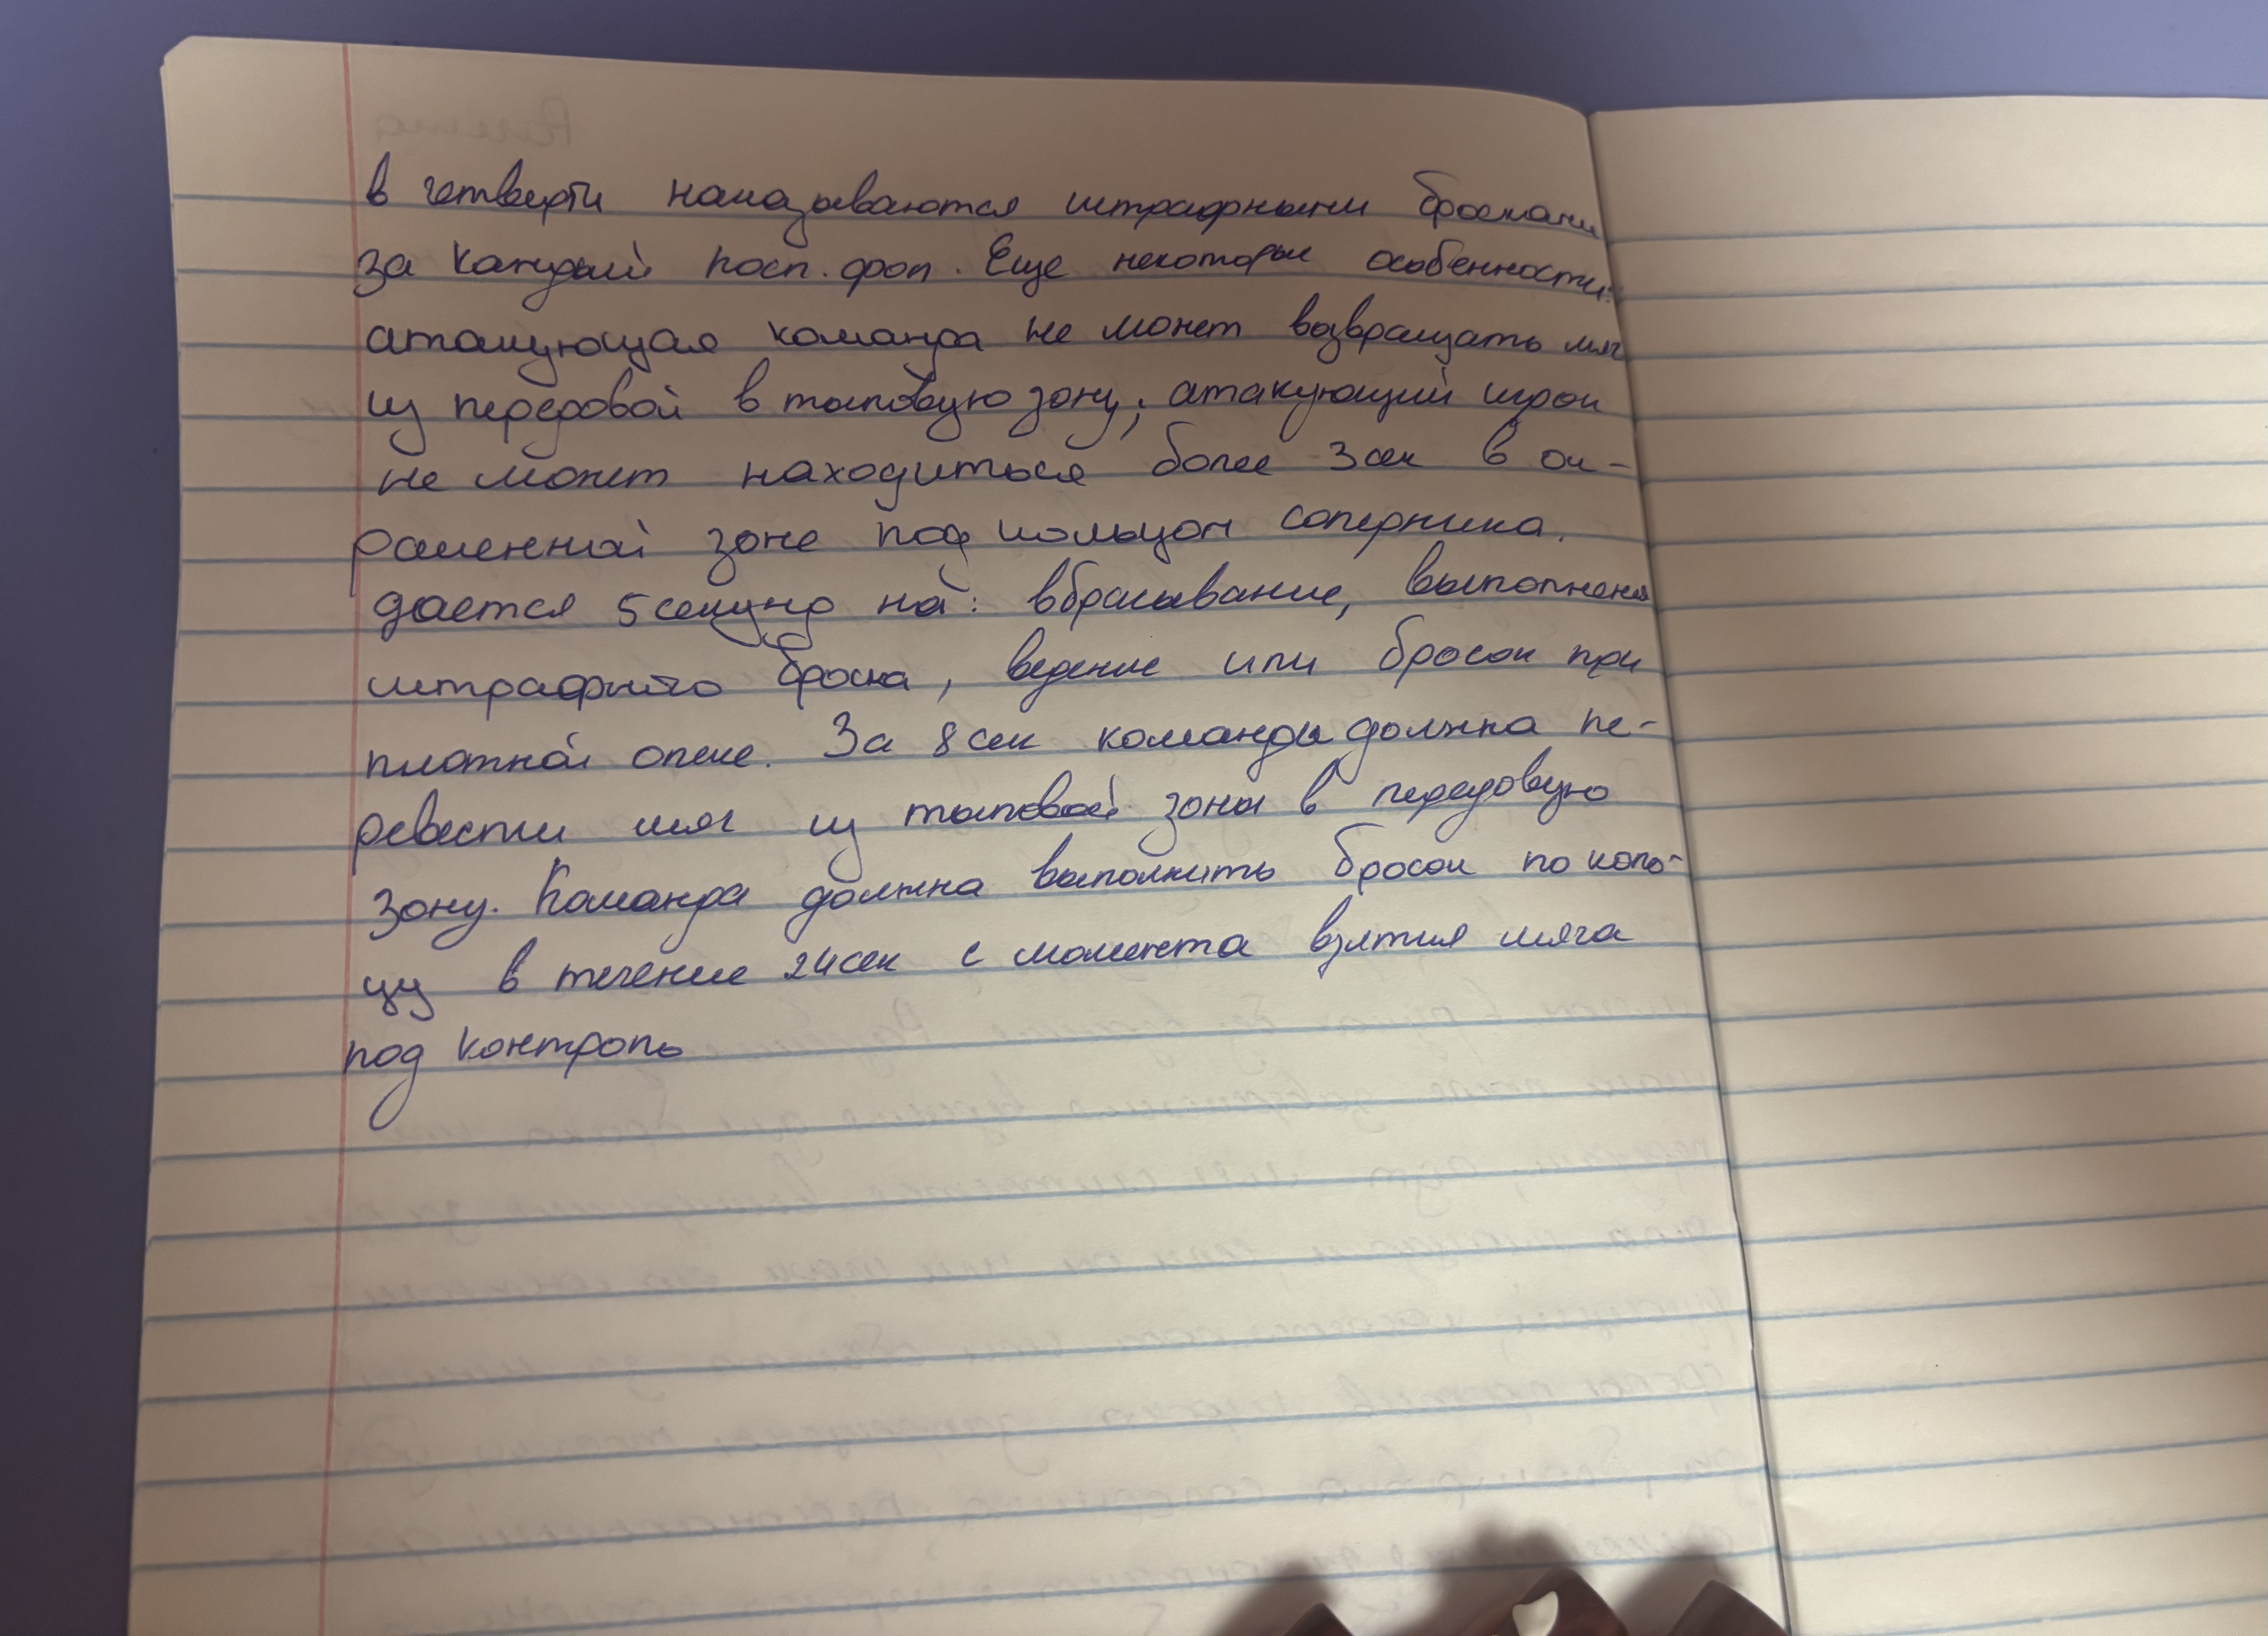 в четверти наказываются штрафными бросками
за каждый посл. фол. Еще некоторые особенности:
атакующая команда не может возвращать мяч
из передовой в тыловую зону; атакующий игрок
не может находиться более 3 сек в ок-
рашенной зоне под кольцом соперника.
дается 5 секунд на: вбрасывание, выполнения
штрафного броска, ведение или бросок при
плотной опеке. За 8 сек команды должна пе-
ревести мяч из тыловой зоны в передовую
зону. Команда должна выполнить бросок по коль-
цу в течение 24 сек с момента взятия мяча
под контроль